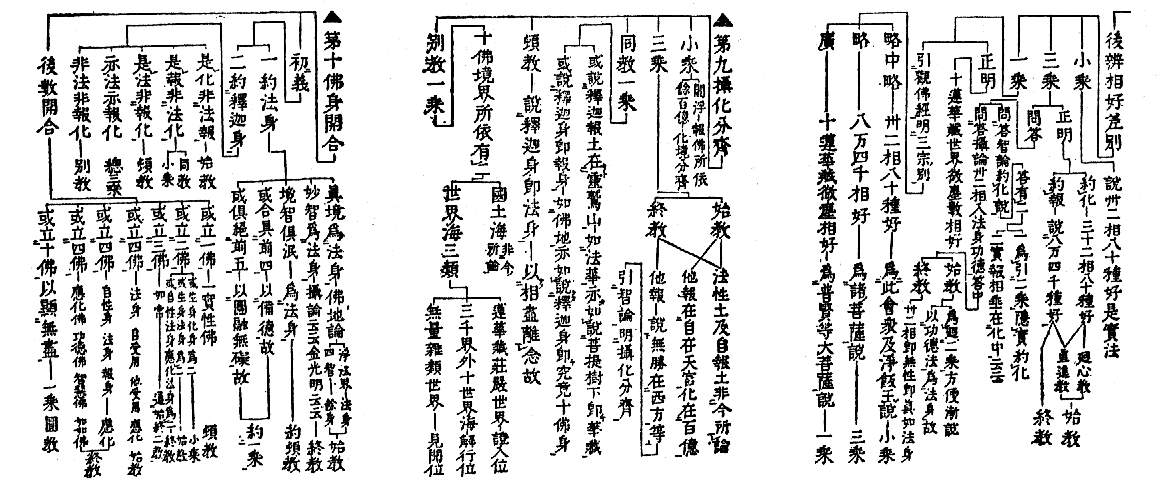 後辨相好差別
說卅二相八十種好是實法
小乘
三乘
一乘
正明
約化—三十二相八十種好
約報—說八万四千種好
迴心教
直進教
始教
終教
問答
答有二
一為引二乘隱實約化
二實報相垂在化中
問答智論約化說
問答攝論卅二相入法身功德答中
正明
十蓮華藏世界微塵數相好
始教
為迴二乘方便漸說
以功德法為法身故
終教
卅二相即無性即真如法身
引觀佛經明三宗別
略中略
卅二相八十種好
為此會眾及淨飯王說—小乘
略
八万四千相好
為諸菩薩說
三乘
廣
十蓮華藏微塵相好
為普賢等大菩薩說—一乘
▲第九攝化分齊
小乘
閻浮—報佛所依
餘百億—化境分齊
三乘
始教
終教
法性土及自報土非今所論
他報在自在天宮化在百億
他報—說無勝在西方等
引智論明攝化分齊
同教一乘
或說釋迦報土在靈鷲山如法華亦如說菩提樹下即華藏
或說釋迦身即報身—如佛地亦如說釋迦身即究竟十佛身
頓教
說釋迦身即法身
以相盡離念故
別教一乘
十佛境界所依有二
國土海
非今所論
世界海三類
蓮華藏莊嚴世界證入位
三千界外十世界海解行位
無量雜類世界—見聞位
▲第十佛身開合
初義
一約法身
真境為法身佛地論
淨法界—法身
四智—餘身
始教
妙智為法身攝論云云金光明云云—終教
境智俱泯—為法身
約頓教
或合具前四以備德故
或俱絕前五以圓融無礙故
約一乘
二約釋迦身
是化非法報—始教
是報非法化
同教
小乘
是法非報化—頓教
亦法亦報化
總三乘
非法非報化—別教
後數開合
或立一佛—一實性佛
頓教
或立二佛
或生身化身為二
小乘
或立三佛
如常
通始終二教
或立四佛
法身
自受用
他受用
應化
始教
或立四佛
自性身
法身
報身
應化
或立四佛
應化佛
功德佛
智慧佛
如如佛
終教
或立十佛以顯無盡—一乘圓教